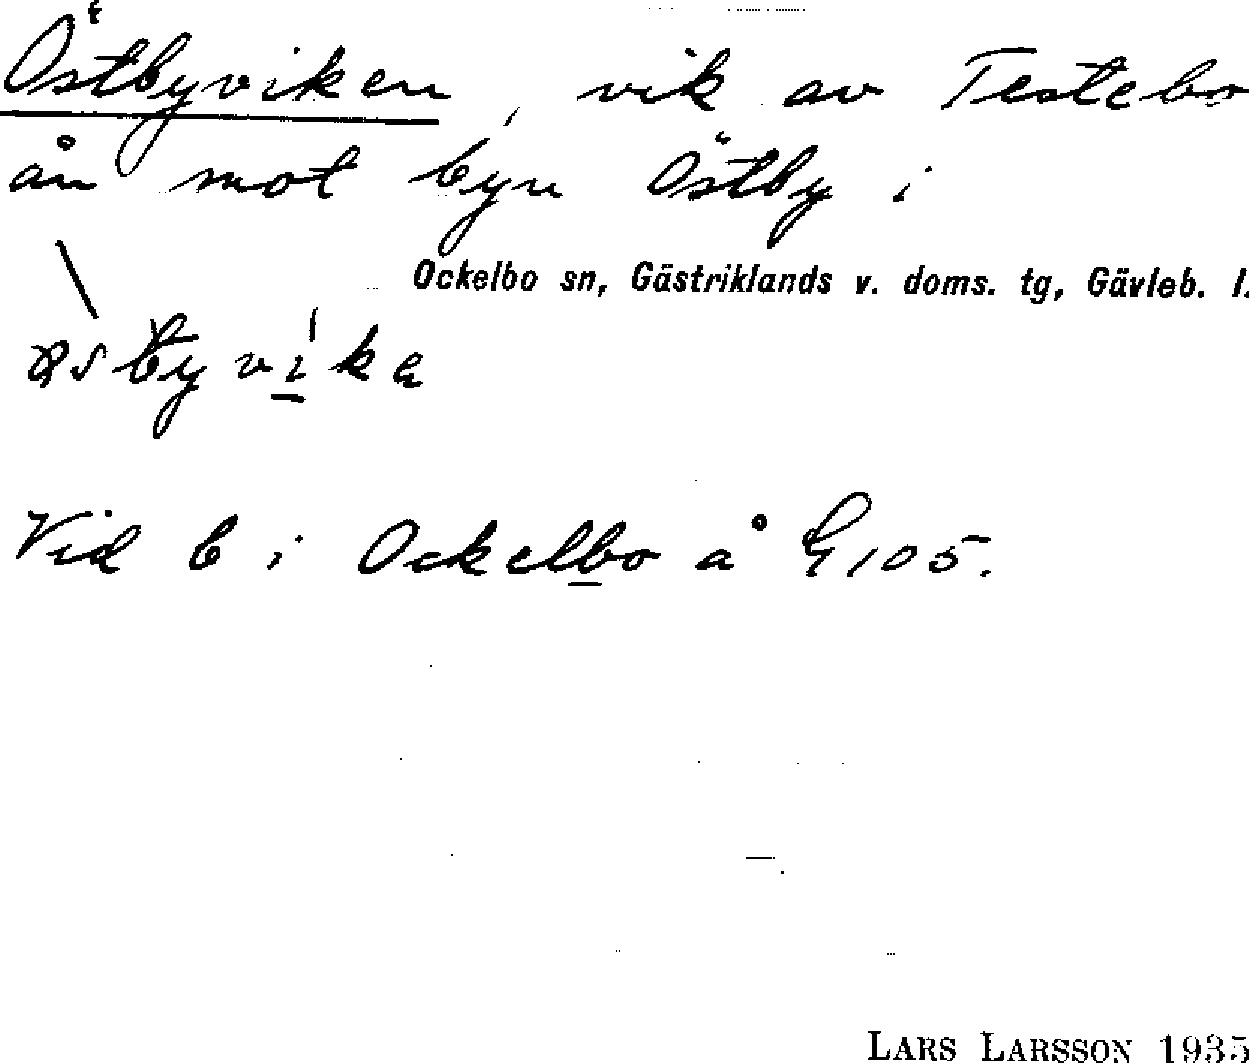 Östbyviken, vik av Testebo
ån mot byn Östby i
Ockelbo sn, Gästriklands v. doms. tg, Gävleb. l.
Vid b i Ockelbo å G 105.
LARS LARSSON 1935